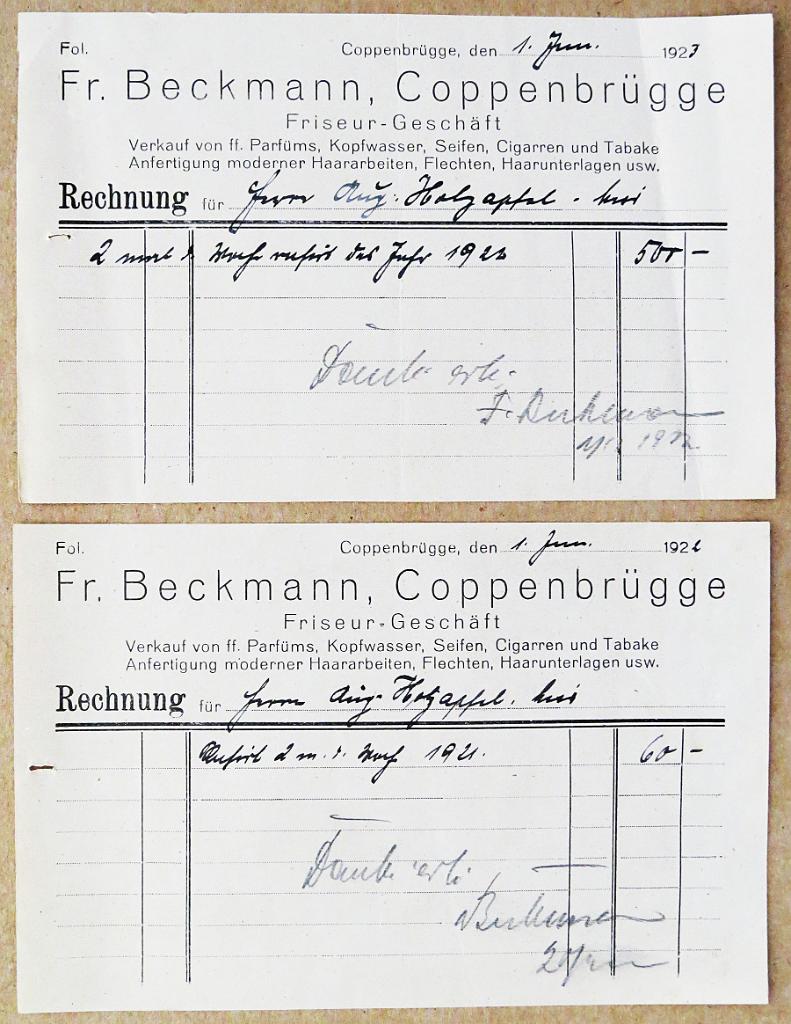 Fol. Coppenbrügge, den 1. Jan. 1923
Fr. Beckmann, Coppenbrügge
Friseur-Geschäft
Verkauf von ff. Parfüms, Kopfwasser, Seifen, Cigarren und Tabake
Anfertigung moderner Haararbeiten, Flechten, Haarunterlagen usw.
Rechnung für Herrn Aug. Holzapfel. hier
2 mal d. Woche rasirt das Jahr 1922 500 –
Dank erh.
F. Beckmann
Fol. Coppenbrügge, den 1. Jan. 1922
Fr. Beckmann, Coppenbrügge
Friseur-Geschäft
Verkauf von ff. Parfüms, Kopfwasser, Seifen, Cigarren und Tabake
Anfertigung moderner Haararbeiten, Flechten, Haarunterlagen usw.
Rechnung für Herrn Aug. Holzapfel. hier
Rasirt 2 m. d. Woch 1921. 60 –
Dank erh.
Beckmann